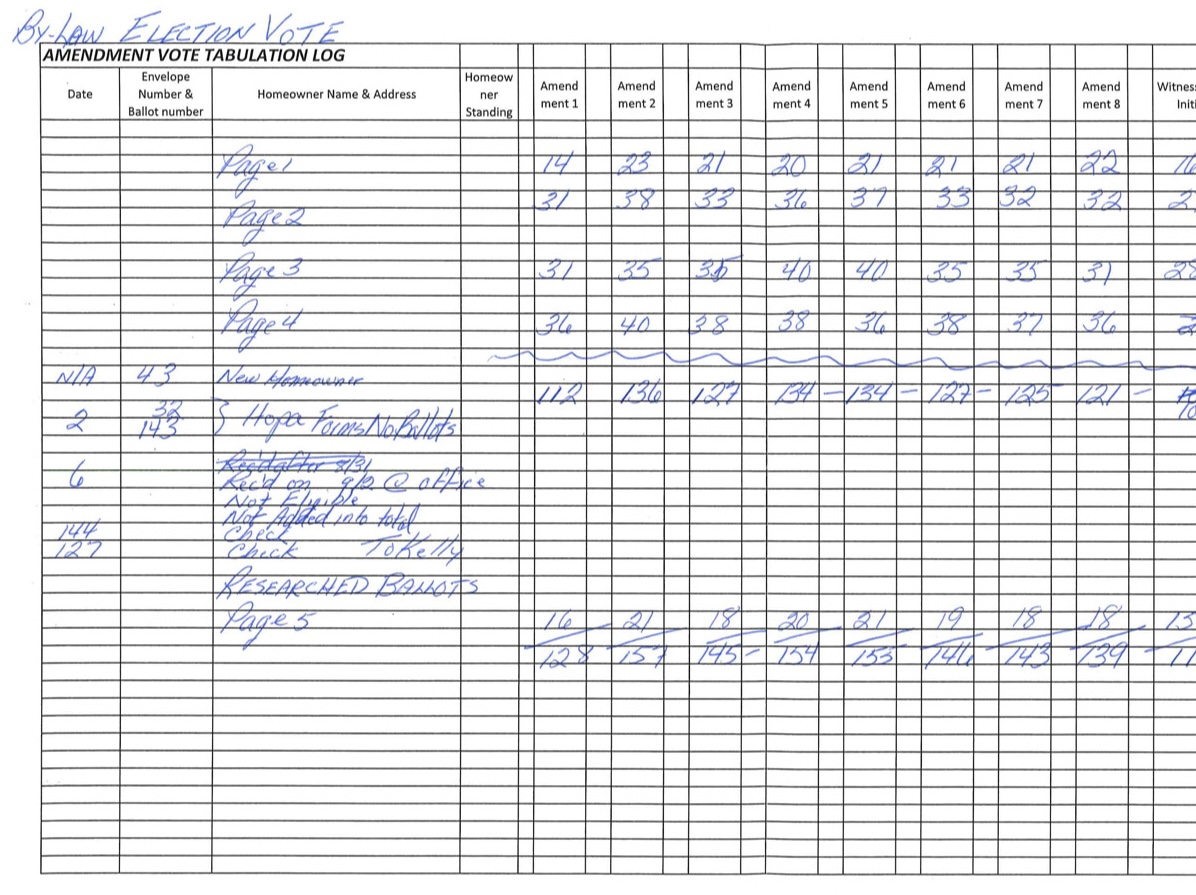 By-Law Election Vote
AMENDMENT VOTE TABULATION LOG
Date Envelope Number & Ballot number Homeowner Name & Address Homeow ner Standing Amend ment 1 Amend ment 2 Amend ment 3 Amend ment 4 Amend ment 5 Amend ment 6 Amend ment 7 Amend ment 8 Witnes Initi
Page 1 14 23 21 20 21 21 21 22 16
Page 2 31 38 33 36 37 33 32 32 2
Page 3 31 35 35 40 40 35 35 31 28
Page 4 36 40 38 38 36 38 37 36 2
N/A 43 New Homeowner
112 136 127 134 - 134 - 127 - 125 121 -
2 32 143 } Hopa Forms No Ballots
Rec'd after 8/31
6 Rec'd on 9/2 @ office
Not Eligible
Not Added into total
144 Check
127 Check To Kelly
RESEARCHED BALLOTS
Page 5 16 21 18 20 21 19 18 18 13
128 157 145 - 154 155 146 143 139 11